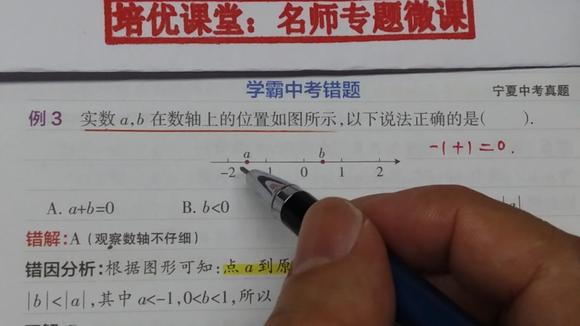 培优课堂：名师专题微课
学霸中考错题
宁夏中考真题
例3 实数a,b在数轴上的位置如图所示,以下说法正确的是( ).
-1+1=0.
a b
-2 1 0 1 2
A. a+b=0 B. b<0
错解:A (观察数轴不仔细)
错因分析:根据图形可知:点a到原
|b|<|a|,其中a<-1,0<b<1,所以